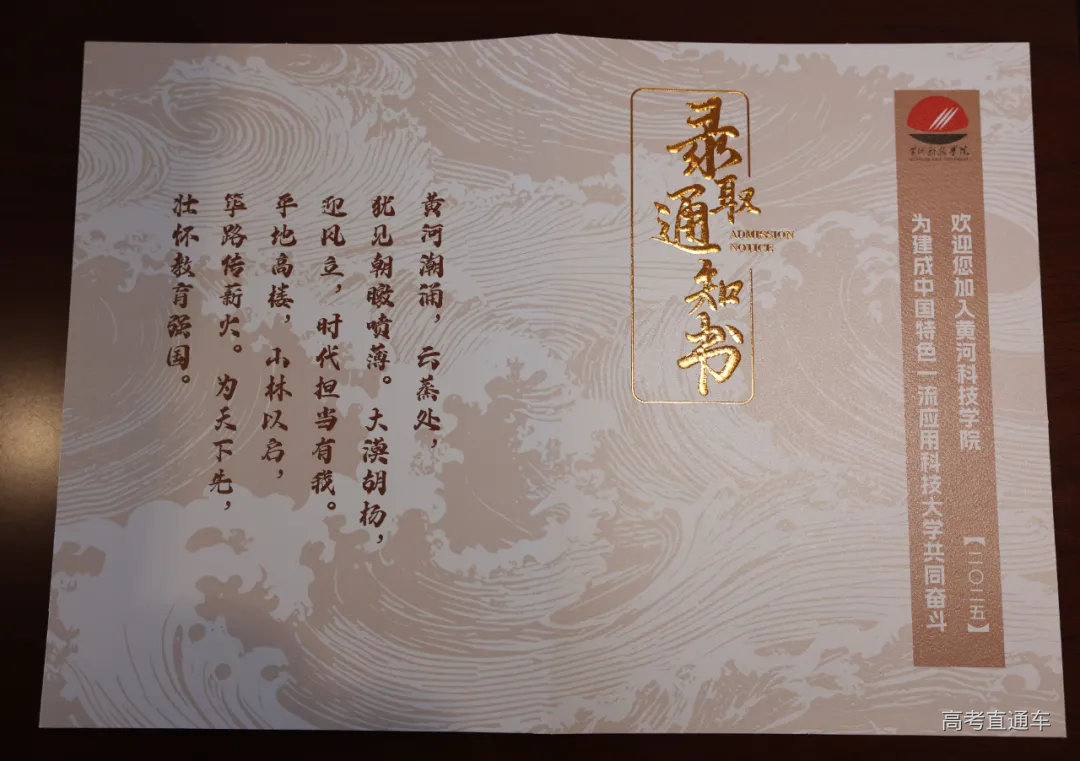 黄河科技学院
欢迎您加入黄河科技学院 【二〇二五】
为建成中国特色一流应用科技大学共同奋斗
录取通知书
ADMISSION
NOTICE
黄河潮涌，云蒸处，
犹见朝暾喷薄。大漠胡杨，
迎风立，时代担当有我。
平地高楼，小林以启，
筚路传薪火。为天下先，
壮怀教育强国。
高考直通车